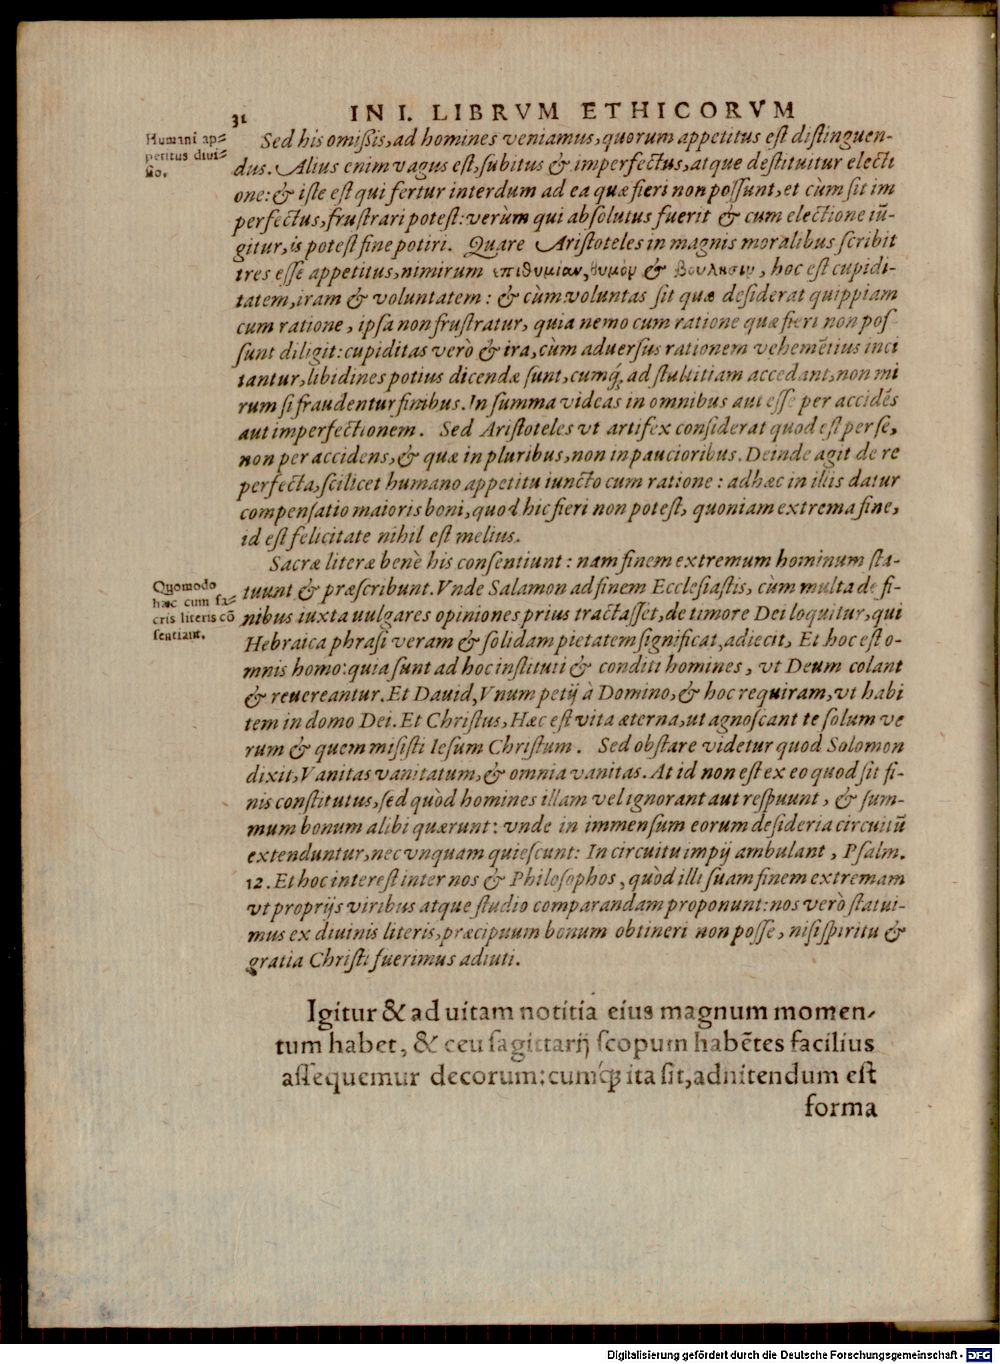 31
IN I. LIBRVM ETHICORVM
Humani ap=
petitus diui=
sio.
Sed his omißis, ad homines veniamus, quorum appetitus est distinguen-
dus. Alius enim vagus est, subitus & imperfectus, atque destituitur electi
one: & iste est qui fertur interdum ad ea quæ fieri non possunt, et cùm sit im
perfectus, frustrari potest: verùm qui absolutus fuerit & cum electione iū-
gitur, is potest fine potiri. Quare Aristoteles in magnis moralibus scribit
tres esse appetitus, nimirum ἐπιθυμίαν, θυμὸν & βούλησιν, hoc est cupidi-
tatem, iram & voluntatem: & cùm voluntas sit quæ desiderat quippiam
cum ratione, ipsa non frustratur, quia nemo cum ratione quæ fieri non pos
sunt diligit: cupiditas verò & ira, cùm aduersus rationem vehemētius inci
tantur, libidines potius dicendæ sunt, cumq́; ad stultitiam accedant, non mi
rum si fraudentur finibus. In summa videas in omnibus aut esse per accidēs
aut imperfectionem. Sed Aristoteles vt artifex considerat quod est per se,
non per accidens, & quæ in pluribus, non in paucioribus. Deinde agit de re
perfecta, scilicet humano appetitu iuncto cum ratione: adhæc in illis datur
compensatio maioris boni, quod hic fieri non potest, quoniam extrema fine,
id est felicitate nihil est melius.
Quomodo
hæc cum sa=
cris literis cō
sentiant.
Sacræ literæ benè his consentiunt: nam finem extremum hominum sta-
tuunt & præscribunt. Vnde Salamon ad finem Ecclesiastis, cùm multa de fi-
nibus iuxta uulgares opiniones prius tractasset, de timore Dei loquitur, qui
Hebraica phrasi veram & solidam pietatem significat, adiecit, Et hoc est o-
mnis homo: quia sunt ad hoc instituti & conditi homines, vt Deum colant
& reuereantur. Et Dauid, Vnum petij à Domino, & hoc requiram, vt habi
tem in domo Dei. Et Christus, Hæc est vita æterna, ut agnoscant te solum ve
rum & quem misisti Iesum Christum. Sed obstare videtur quod Solomon
dixit, Vanitas vanitatum, & omnia vanitas. At id non est ex eo quod sit fi-
nis constitutus, sed quòd homines illam vel ignorant aut respuunt, & sum-
mum bonum alibi quærunt: vnde in immensum eorum desideria circuitū
extenduntur, nec vnquam quiescunt: In circuitu impij ambulant, Psalm.
12. Et hoc interest inter nos & Philosophos, quòd illi suam finem extremam
vt proprijs viribus atque studio comparandam proponunt: nos verò statui-
mus ex diuinis literis, præcipuum bonum obtineri non posse, nisi spiritu &
gratia Christi fuerimus adiuti.
Igitur & ad uitam notitia eius magnum momen-
tum habet, & ceu sagittarij scopum habētes facilius
assequemur decorum: cumq́; ita sit, adnitendum est
forma
Digitalisierung gefördert durch die Deutsche Forschungsgemeinschaft - DFG